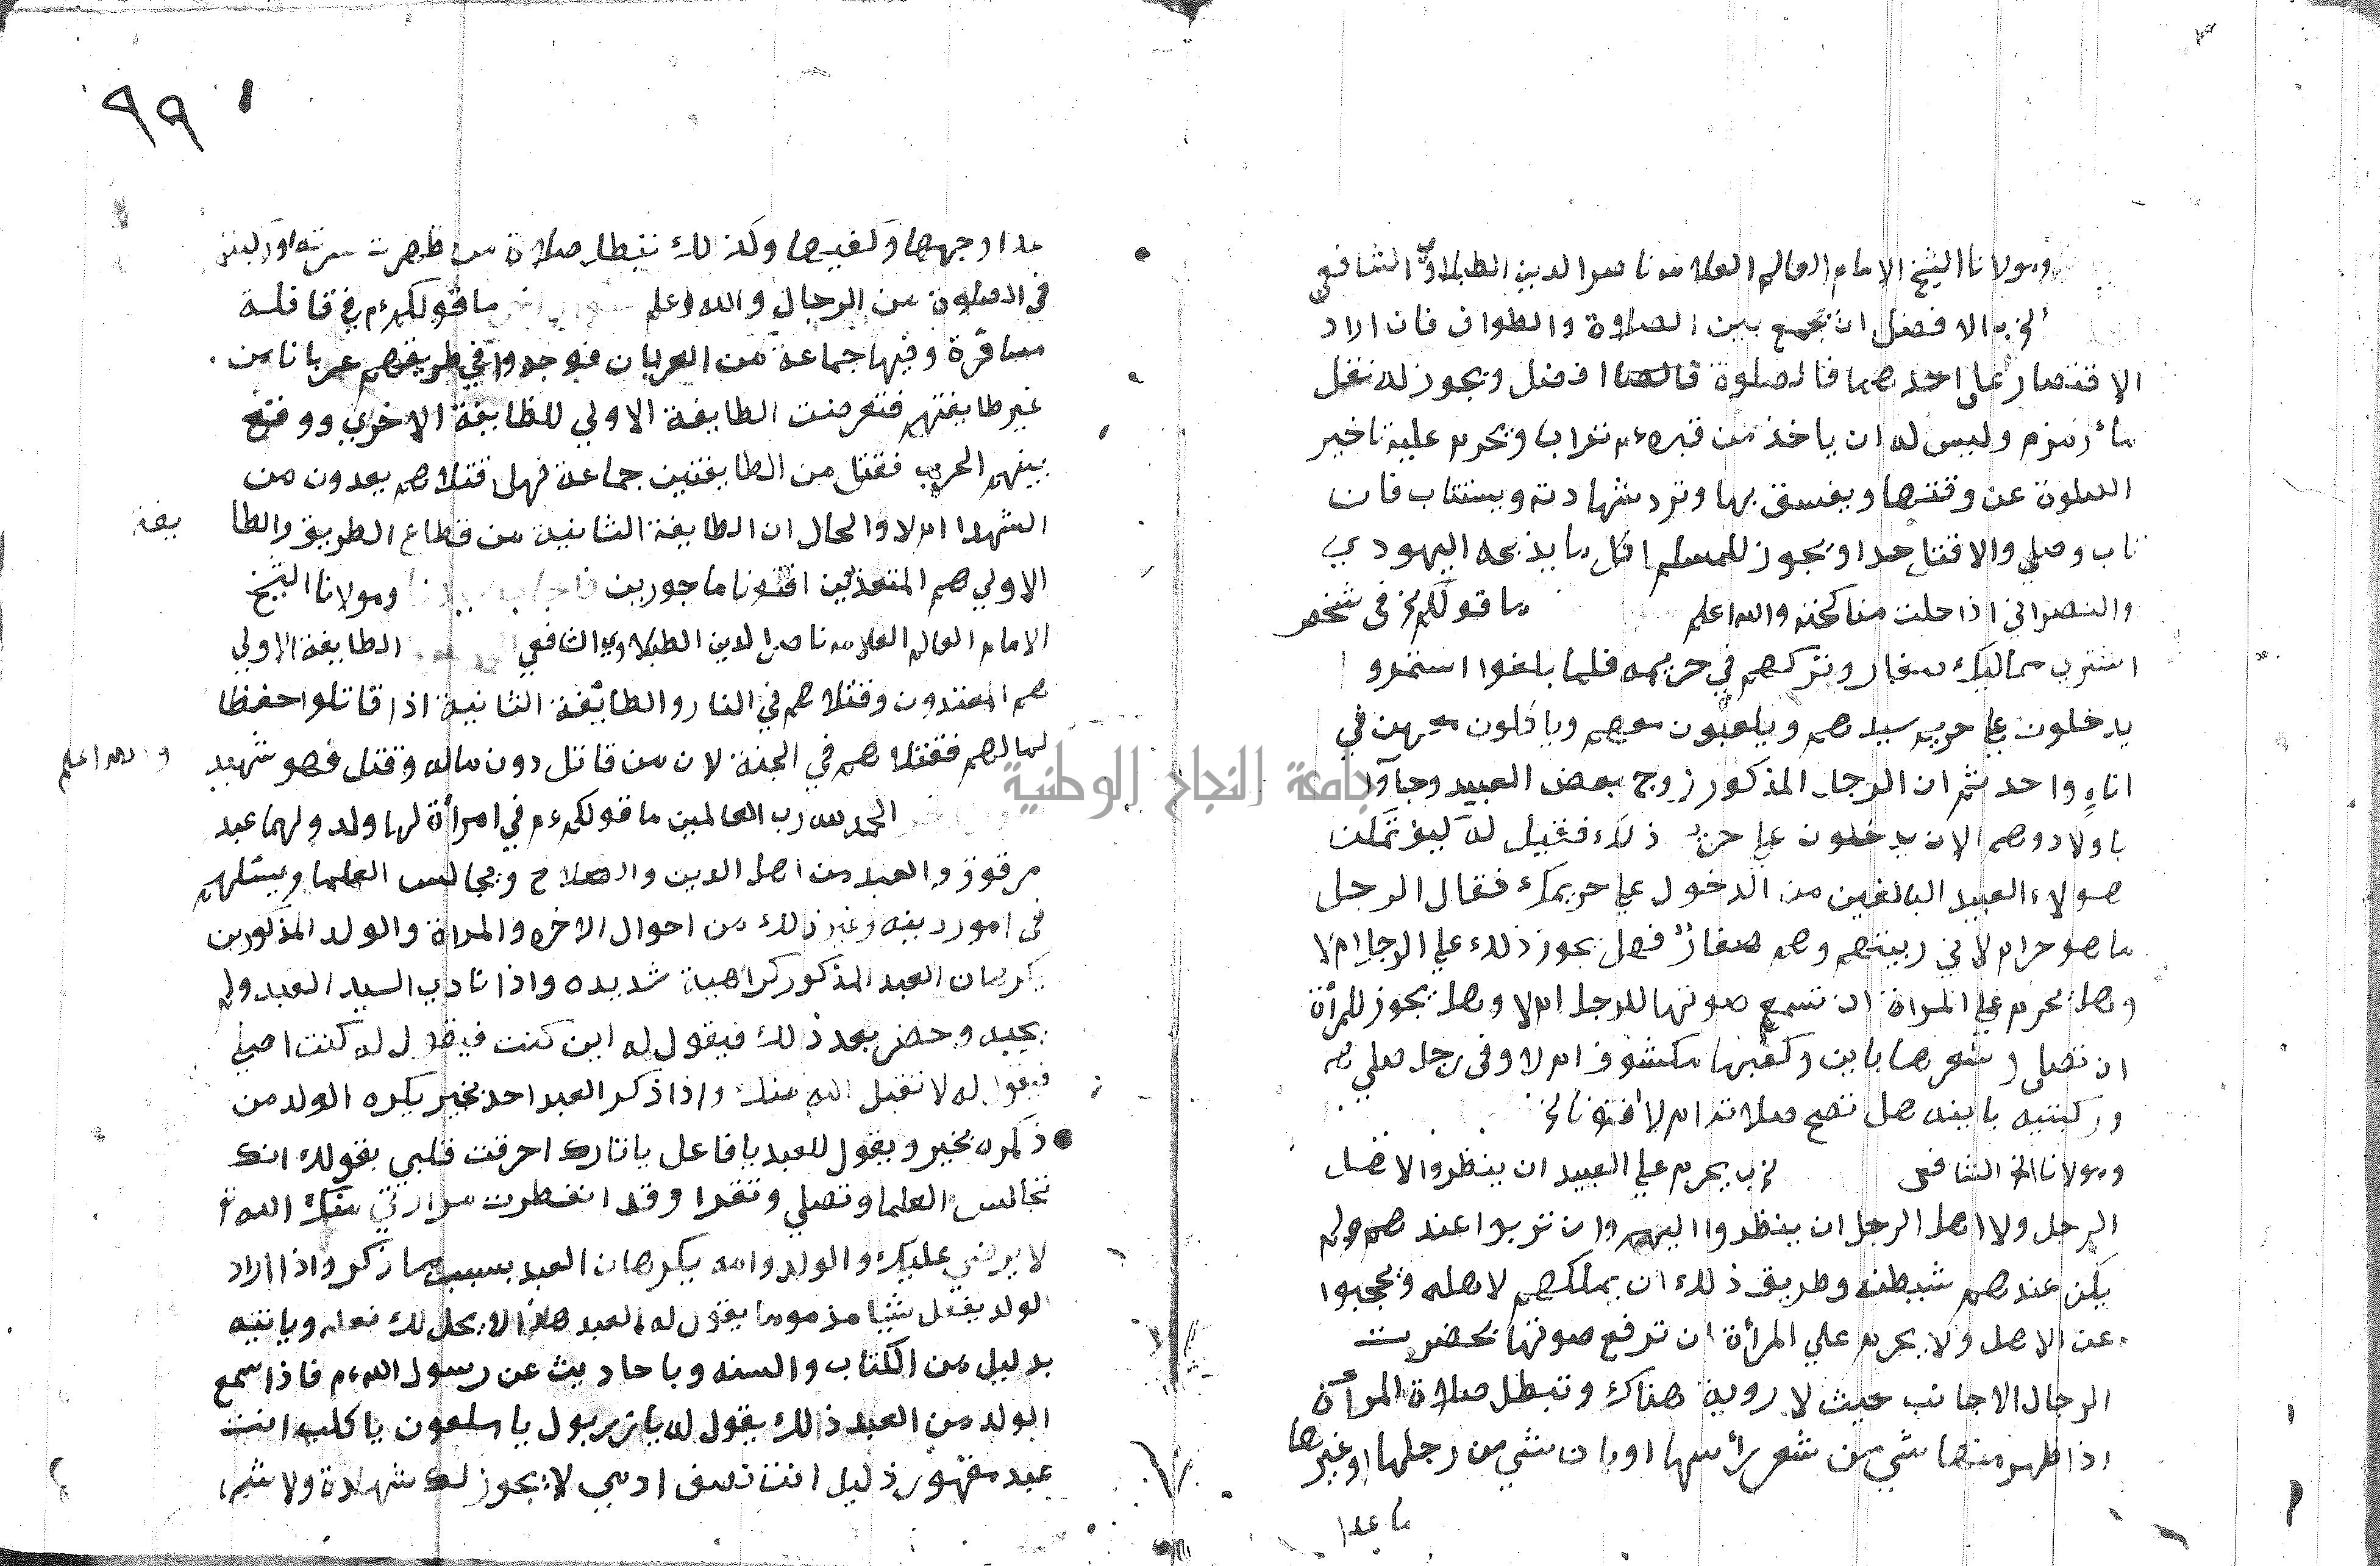 ومولانا الشيخ الامام العالم العلامه ناصر الدين الطبلاوي الشافعي
الافضل ان يجمع بين الصلاة والطواف فان اراد
الاقتصار على احدهما فالصلوة افضل ويجوز له نقل
ماء زمزم وليس له ان ياخذ من قبره م تراب ويحرم عليه تاخير
الصلوة عن وقتها ويفسق بها وترد شهادته ويستتاب فان
تاب وصلي والا قتل حدا ويجوز للمسلم اكل ما يذبحه اليهودي
والنصراني اذا حلت مناكحته والله اعلم ما قولكم في شخص
اشتري مماليك صغار وتركهم في حريمه فلما بلغوا استمروا
يدخلون علي حريم سيدهم ويلعبون معهم وياكلون معهن في
اناءٍ واحد ثم ان الرجل المذكور زوج بعض العبيد وجاؤا
باولاد وهم الان يدخلون علي حريم ذلك فقيل له كيف تمكن
هولاء العبيد البالغين من الدخول علي حريمك فقال الرجل
ما هو حرام لاني ربيتهم وهم صغار فهل يجوز ذلك علي الرجل ام لا
وهل يحرم علي المراة ان تسمع صوتها للرجل ام لا وهل يجوز للمرأة
ان تصلي وشعرها باين وكعبها مكشوف ام لا وفي رجل صلي
وركبتيه باينه هل تصح صلاته ام لا افتونا
ومولانا الخ الشافعي يحرم علي العبيد ان ينظروا لاهل
الرجل ولا اهل الرجل ان ينظروا اليهم وان تربوا عندهم ولم
يكن عندهم شيطنه وطريق ذلك ان يملكهم لاهله ويحجبوا
عن الاهل ولا يحرم علي المرأة ان ترفع صوتها بحضرت
الرجال الاجانب حيث لا روية هناك وتبطل صلاة المرأة
اذا ظهر منها شي من شعر رأسها او بان شي من رجلها او غيرها
ما عدا
٩٩
عدا وجهها وكفيها وكذلك تبطل صلاة من ظهرت سرته او ركبته
في الصلوة من الرجال والله اعلم ما قولكم في قافلة
مسافرة وفيها جماعة من العربان فوجدوا في طريقهم عربانا من
غير طايفتهم فتعرضت الطايفة الاولي للطايفة الاخري ووقع
بينهم الحرب فقتل من الطايفتين جماعة فهل قتلاهم يعدون من
الشهدا ام لا والحال ان الطايفة الثانية من قطاع الطريق والطا يفة
الاولي هم المتعدين افتونا ماجورين ومولانا الشيخ
الامام العالم العلامه ناصر الدين الطبلاوي الشافعي الطايفة الاولي
هم المعتدون وقتلاهم في النار والطائفة الثانية اذا قاتلوا حفظا
لمالهم فقتلاهم في الجنة لان من قاتل دون ماله وقتل فهو شهيد والله اعلم
الحمد لله رب العالمين ما قولكم في امرأة لها ولد ولهما عبد
مرقوق والعبد من اهل الدين والصلاح ويجالس العلما ويسئلهم
في امور دينه وغير ذلك من احوال الاخره والمراة والولد المذكورين
يكرهان العبد المذكور كراهية شديده واذا نادي السيد العبد ولم
يجيبه وحضر بعد ذلك فيقول له اين كنت فيقول له كنت اصلي
فيقول له لا تقبل الله منك واذا ذكر العبد احد بخير يكره الولد من
ذكره بخير ويقول للعبد يا فاعل يا تارك احرقت قلبي بقولك انك
تجالس العلما وتصلي وتقرا وقد انفطرت مرارتي منك الله
لا يرضي عليك والولد وامه يكرهان العبد بسبب ما ذكر واذا اراد
الولد يفعل شيا مذموما يقول له العبد هذا لا يحل لك فعله وياتيه
بدليل من الكتاب والسنه وباحاديث عن رسول الله م فاذا سمع
الولد من العبد ذلك يقول له يا زربول يا ملعون يا كلب انت
عبد مقهور ذليل انت نصف ادمي لا يجوز لك شهادة ولا
جامعة النجاح الوطنية